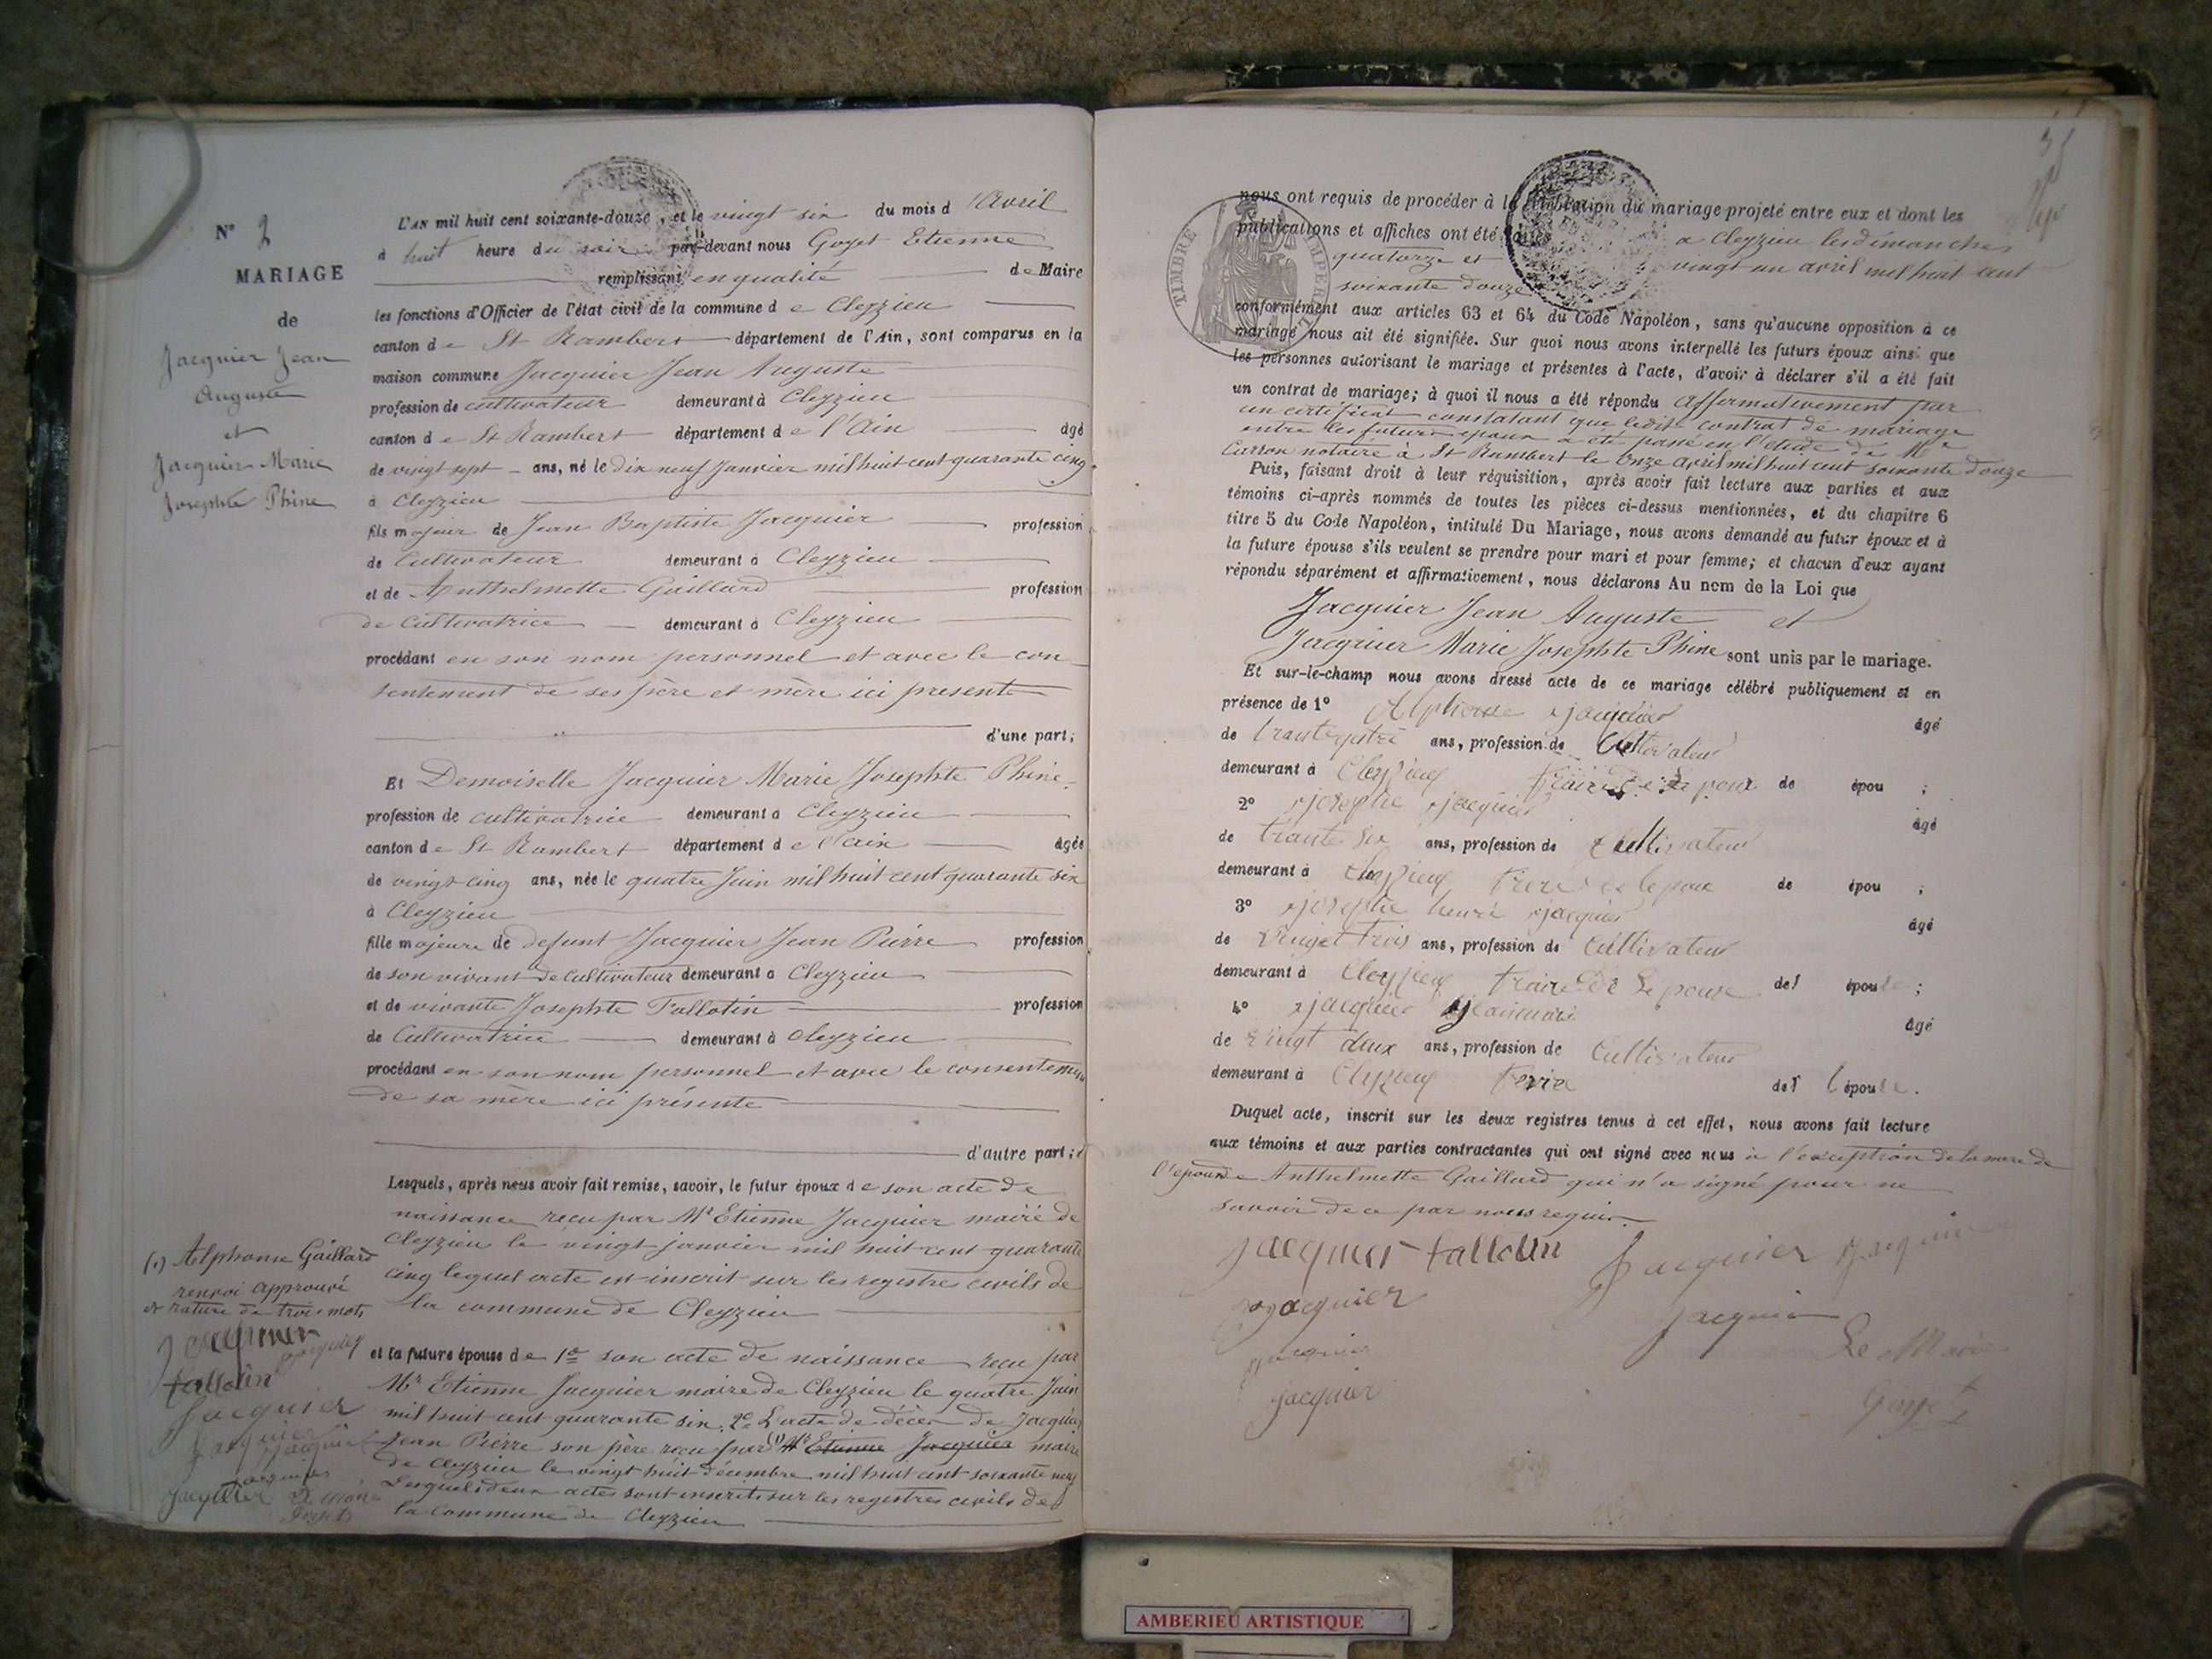 N° 2
MARIAGE
de
Jacquier Jean
Auguste
et
Jacquier Marie
Josephte Phine
L'AN mil huit cent soixante-douze, et le vingt six du mois d'Avril
à huit heure du soir par-devant nous Goyet Etienne
remplissant en qualité de Maire
les fonctions d'Officier de l'état civil de la commune de Cleyzieu
canton de St Rambert département de l'Ain, sont comparus en la
maison commune Jacquier Jean Auguste
profession de cultivateur demeurant à Cleyzieu
canton de St Rambert département de l'Ain âgé
de vingt sept ans, né le dix neuf Janvier mil huit cent quarante cinq
à Cleyzieu
fils majeur de Jean Baptiste Jacquier profession
de Cultivateur demeurant à Cleyzieu
et de Anthelmette Gaillard profession
de Cultivatrice demeurant à Cleyzieu
procédant en son nom personnel et avec le con
sentement de ses père et mère ici présents
d'une part;
Et Demoiselle Jacquier Marie Josephte Phine
profession de cultivatrice demeurant à Cleyzieu
canton de St Rambert département de l'ain âgée
de vingt-cinq ans, née le quatre Juin mil huit cent quarante six
à Cleyzieu
fille majeure de defunt Jacquier Jean Pierre profession
de son vivant de Cultivateur demeurant à Cleyzieu
et de vivante Josephte Fallotin profession
de Cultivatrice demeurant à Cleyzieu
procédant en son nom pérsonnel et avec le consentement
de sa mère ici présente
d'autre part;
Lesquels, après nous avoir fait remise, savoir, le futur époux de son acte de
naissance reçu par Mr Etienne Jacquier maire de
Cleyzieu le vingt janvier mil huit cent quarante
cinq lequel acte est inscrit sur les registre civils de
la commune de Cleyzieu
et la future épouse de 1° son acte de naissance reçu par
Mr Etienne Jacquier maire de Cleyzieu le quatre Juin
mil huit cent quarante six. 2° L'acte de décès de Jacquier
Jean Pierre son père reçu par (1) Mr Etienne Jacquier maire
de Cleyzieu le vingt huit décembre mil huit cent soixante neuf
Lesquels deux actes sont inscrits sur les registres civils de
la commune de Cleyzieu
(1) Alphonse Gaillard
renvoi approuvé
et rature de trois mots
Jacquier
Jacquier
fallotin
Jacquier
Jacquier
Jacquier
Jacquier
Jacquier
Le Maire
Goyet
nous ont requis de procéder à la célébration du mariage projeté entre eux et dont les
publications et affiches ont été faites a Cleyzieu les dimanches
quatorze et vingt un avril mil huit cent
soixante douze
conformément aux articles 63 et 64 du Code Napoléon, sans qu'aucune opposition à ce
mariage nous ait été signifiée. Sur quoi nous avons interpellé les futurs époux ainsi que
les personnes autorisant le mariage et présentes à l'acte, d'avoir à déclarer s'il a été fait
un contrat de mariage; à quoi il nous a été répondu affirmativement par
un certificat constatant que ledit contrat de mariage
entre les futurs époux a été passé en l'étude de Me
Carron notaire à St Rambert le Onze avril mil huit cent soixante douze
Puis, faisant droit à leur réquisition, après avoir fait lecture aux parties et aux
témoins ci-après nommés de toutes les pièces ci-dessus mentionnées, et du chapitre 6
titre 5 du Code Napoléon, intitulé Du Mariage, nous avons demandé au futur époux et à
la future épouse s'ils veulent se prendre pour mari et pour femme; et chacun d'eux ayant
répondu séparément et affirmativement, nous déclarons Au nom de la Loi que
Jacquier Jean Auguste et
Jacquier Marie Josephte Phine sont unis par le mariage.
Et sur-le-champ nous avons dressé acte de ce mariage célébré publiquement et en
présence de 1° Alphonse jacquier âgé
de trante quatre ans, profession de Cultivateur
demeurant à Cleyzieu fraire de Lepoux de épou ;
2° josephe jacquier âgé
de trante six ans, profession de Cultivateur
demeurant à Cleyzieu frere de lepoux de épou ;
3° josephe henri jacquier âgé
de vinget trois ans, profession de Cultivateur
demeurant à Cleyzieu fraire De Lepouse del épouse ;
4° jacquier âgé
de vingt deux ans, profession de Cultivateur
demeurant à Cleyzieu del épouse.
Duquel acte, inscrit sur les deux registres tenus à cet effet, nous avons fait lecture
aux témoins et aux parties contractantes qui ont signé avec nous à l'exception de la mère de
l'epoux Anthelmette Gaillard qui n'a signé pour ne
savoir de ce par nous requis.
Jacquier fallotin Jacquier Jacquier
Jacquier Jacquier
Jacquier Le Maire
Jacquier Goyet
TIMBRE IMPERIAL
AMBERIEU ARTISTIQUE